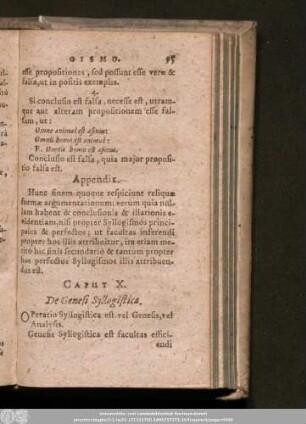 GISMO. 95
esse propositiones, sed possunt esse veræ &
falsæ, ut in positis exemplis.
4.
Si conclusio est falsa, necesse est, utram-
que aut alteram propositionem esse fal-
sam, ut:
Omne animal est asinus:
Omnis homo est animal:
E. Omnis homo est asinus.
Conclusio est falsa, quia major proposi-
tio falsa est.
Appendix.
Hunc finem quoque respiciunt reliquæ
formæ argumentationum: verum quia nul-
lam habent & conclusionis & illationis e-
videntiam, nisi propter Syllogismos princi-
pales & perfectos; ut facultas inferendi
propter hos illis attribuitur, ita etiam me-
rito hic finis secundario & tantum propter
hos perfectos Syllogismos illis attribuen-
dus est.
CAPUT X.
De Genesi Syllogistica.
OPeratio Syllogistica est vel Genesis, vel
Analysis.
Genesis Syllogistica est facultas effici-
endi